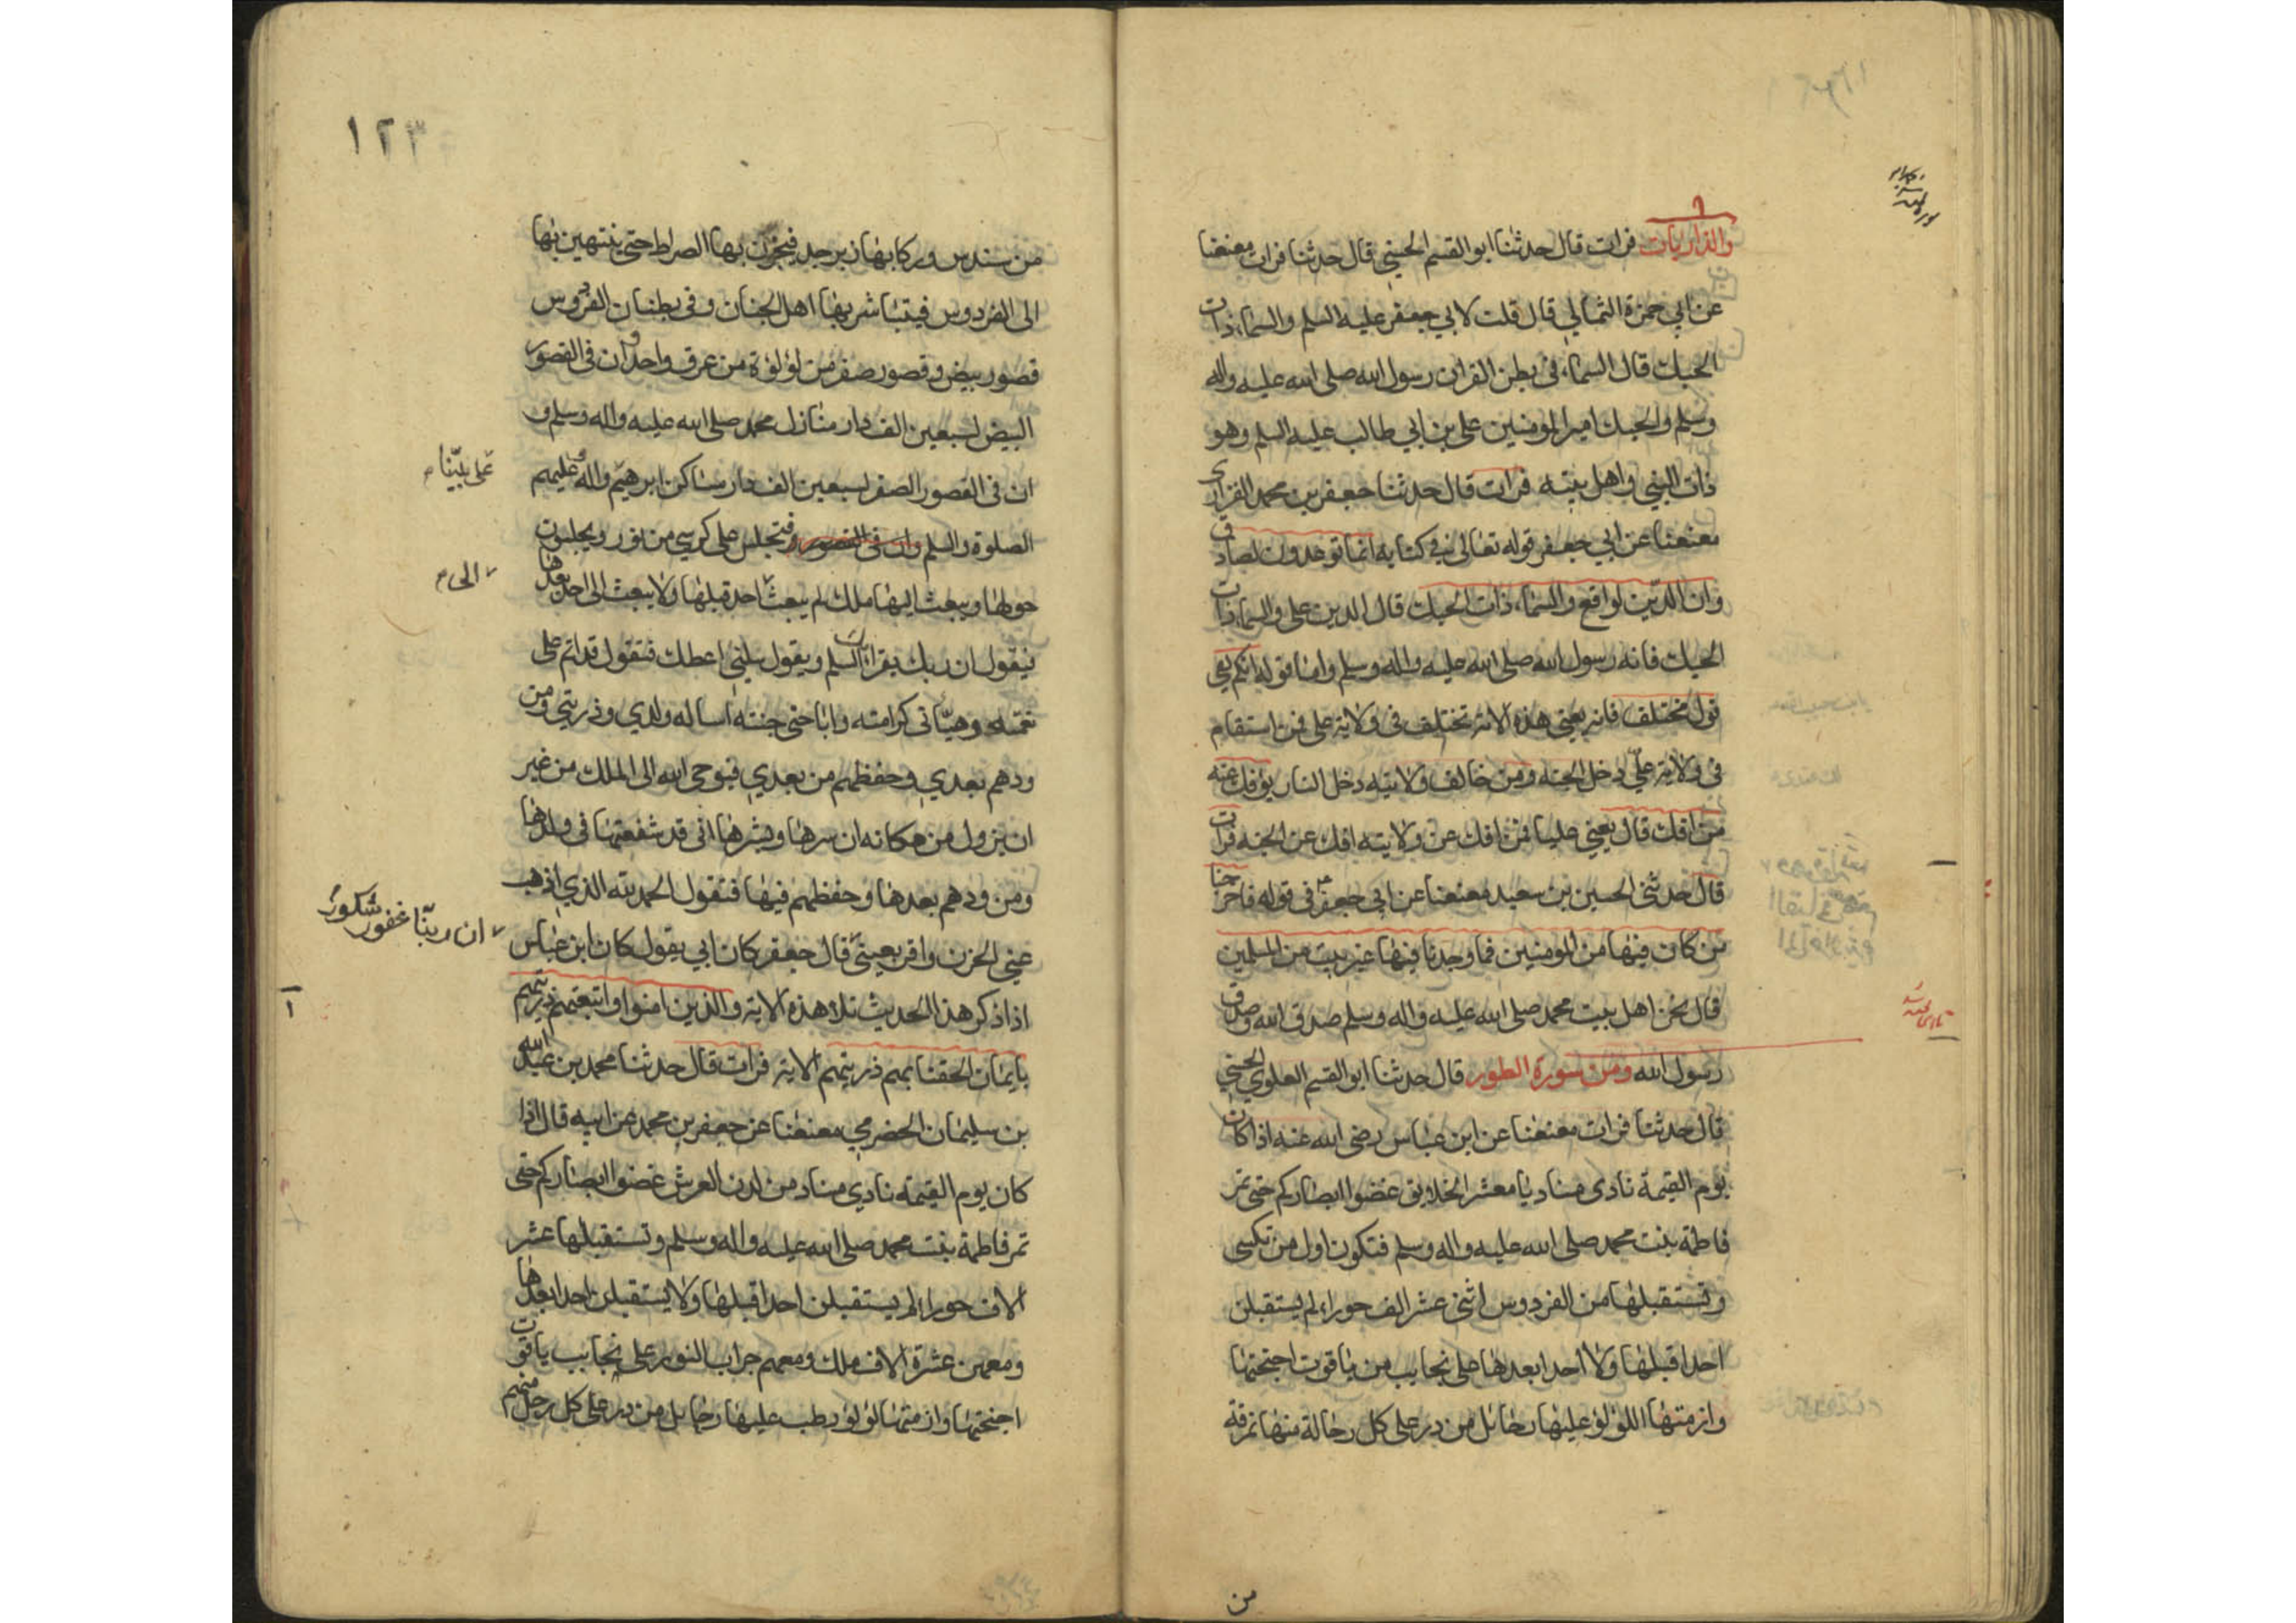 والذاريات فرات قال حدثنا ابو القسم الحسني قال حدثنا فرات معنعنا
عن ابي حمزة الثمالي قال قلت لابي جعفر عليه السلم والسماء ذات
الحبك قال السماء في بطن القران رسول الله صلى الله عليه واله
وسلم والحبك امير المومنين علي بن ابي طالب عليه السلم وهو
ذات النبي واهل بيته فرات قال حدثنا جعفر بن محمد الفزاري
معنعنا عن ابي جعفر قوله تعالى في كتابه انما توعدون لصادق
وان الدين لواقع والسماء ذات الحبك قال الدين علي والسماء ذات
الحبك فانه رسول الله صلى الله عليه واله وسلم واما قوله انكم لفي
قول مختلف فانه يعني هذه الامة تختلف في ولاية علي فمن استقام
في ولاية علي دخل الجنه ومن خالف ولايته دخل النار يؤفك عنه
من افك قال يعني عليا فمن افك عن ولايته افك عن الجنه فرات
قال حدثني الحسين بن سعيد معنعنا عن ابي جعفر في قوله فاخرجنا
من كان فيها من المومنين فما وجدنا فيها غير بيت من المسلمين
قال نحن اهل بيت محمد صلى الله عليه واله وسلم صدق الله وصدق
رسول الله ومن سورة الطور قال حدثنا ابو القسم العلوي الحسني
قال حدثنا فرات معنعنا عن ابن عباس رضي الله عنه اذا كان
يوم القيمة نادى مناد يا معشر الخلايق غضوا ابصاركم حتى تمر
فاطمة بنت محمد صلى الله عليه واله وسلم فتكون اول من تكسى
وتستقبلها من الفردوس اثنى عشر الف حوراء لم يستقبلن
احدا قبلها ولا احدا بعدها على نجايب من ياقوت اجنحتها
وازمتها اللؤلؤ عليها رحائل من در على كل رحالة منها نمرقة
من
١٢٣
من سندس وركابها زبرجد فيجزن بها الصراط حتى ينتهين بها
الى الفردوس فيتباشر بها اهل الجنان وفى بطنان الفردوس
قصور بيض وقصور صفر من لؤلؤة من عرق واحد وان فى القصور
البيض لسبعين الف دار منازل محمد صلى الله عليه واله وسلم و
ان فى القصور الصفر لسبعين الف دار مساكن ابرهيم واله عليهم
على نبينا
الصلوة والسلم وان في القصور فتجلس على كرسي من نور ويجلسون
حولها ويبعث اليها ملك لم يبعث احد قبلها ولا يبعث الى احد بعدها
الى
فيقول ان ربك يقرءك السلم ويقول سليني اعطك فتقول قد اتم علي
نعمته وهنأني كرامته واباحني جنته اساله ولدي وذريتي ومن
ودهم بعدي وحفظهم من بعدي فيوحى الله الى الملك من غير
ان يزول من مكانه ان سرها وبشرها انى قد شفعتها فى ولدها
ومن ودهم بعدها وحفظهم فيها فتقول الحمد لله الذي اذهب
عني الحزن واقر بعيني قال جعفر كان ابي يقول كان ابن عباس
ان ربنا غفور شكور
اذا ذكر هذا الحديث تلا هذه الاية والذين امنوا واتبعتهم ذريتهم
بايمان الحقنا بهم ذريتهم الاية فرات قال حدثنا محمد بن عبد الله
بن سليمان الحضرمي معنعنا عن جعفر بن محمد عن ابيه قال اذا
كان يوم القيمة نادي مناد من لدن العرش غضوا ابصاركم حتى
تمر فاطمة بنت محمد صلى الله عليه واله وسلم وتستقبلها عشر
الاف حوراء لم يستقبلن احدا قبلها ولا يستقبلن احدا بعدها
ومعهن عشرة الاف ملك ومعهم حراب النور على نجايب ياقوت
اجنحتها وازمتها لؤلؤ رطب عليها رحايل من در على كل رحل منهم